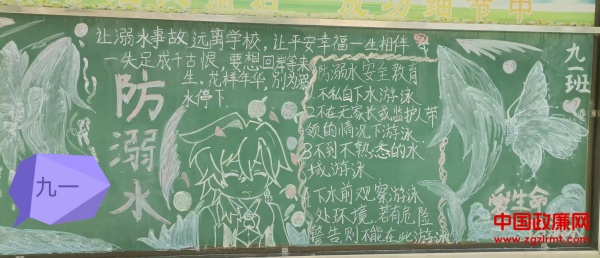 让溺水事故远离学校，让平安幸福一生相伴
一失足成千古恨，要想回岸等来
生。花样年华，别为溺
水停下
防溺水
防溺水安全教育
1.不私自下水游泳
2.不在无家长或监护人带
领的情况下游泳
3.不到不熟悉的水
域游泳
4.下水前观察游泳
处环境,若有危险
警告,则不能在此游泳
九一班
爱生命
九一
中国政廉网
www.zgzlrmt.com